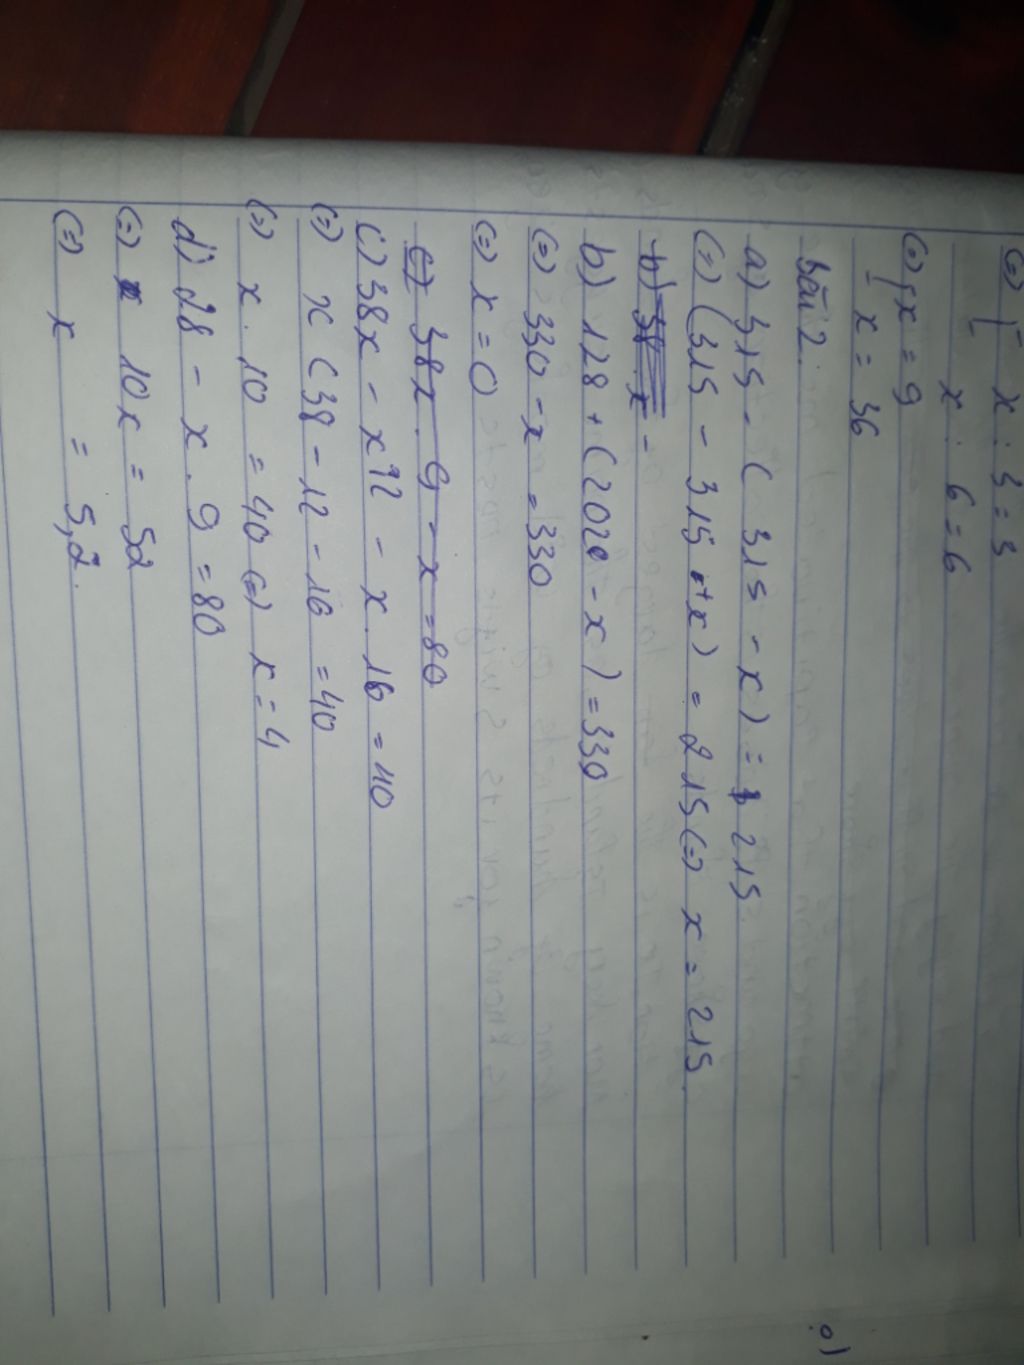 (=) x : 3 = 3
x : 6 = 6
(=) x = 9
x = 36
bài 2.
a) 315 - ( 315 - x) = 215
(=) (315 - 315 + x) = 215 (=) x = 215
b) 38 x -
b) 128 + (202 - x) = 330
(=) 330 - x = 330
(=) x = 0
c) 38x . 9 - x = 80
c) 38x - x 12 - x . 16 = 40
(=) x (38 - 12 - 16 = 40
(=) x . 10 = 40 (=) x = 4
d) 28 - x . 9 = 80
(=) 10x = 52
(=) x = 5,2.